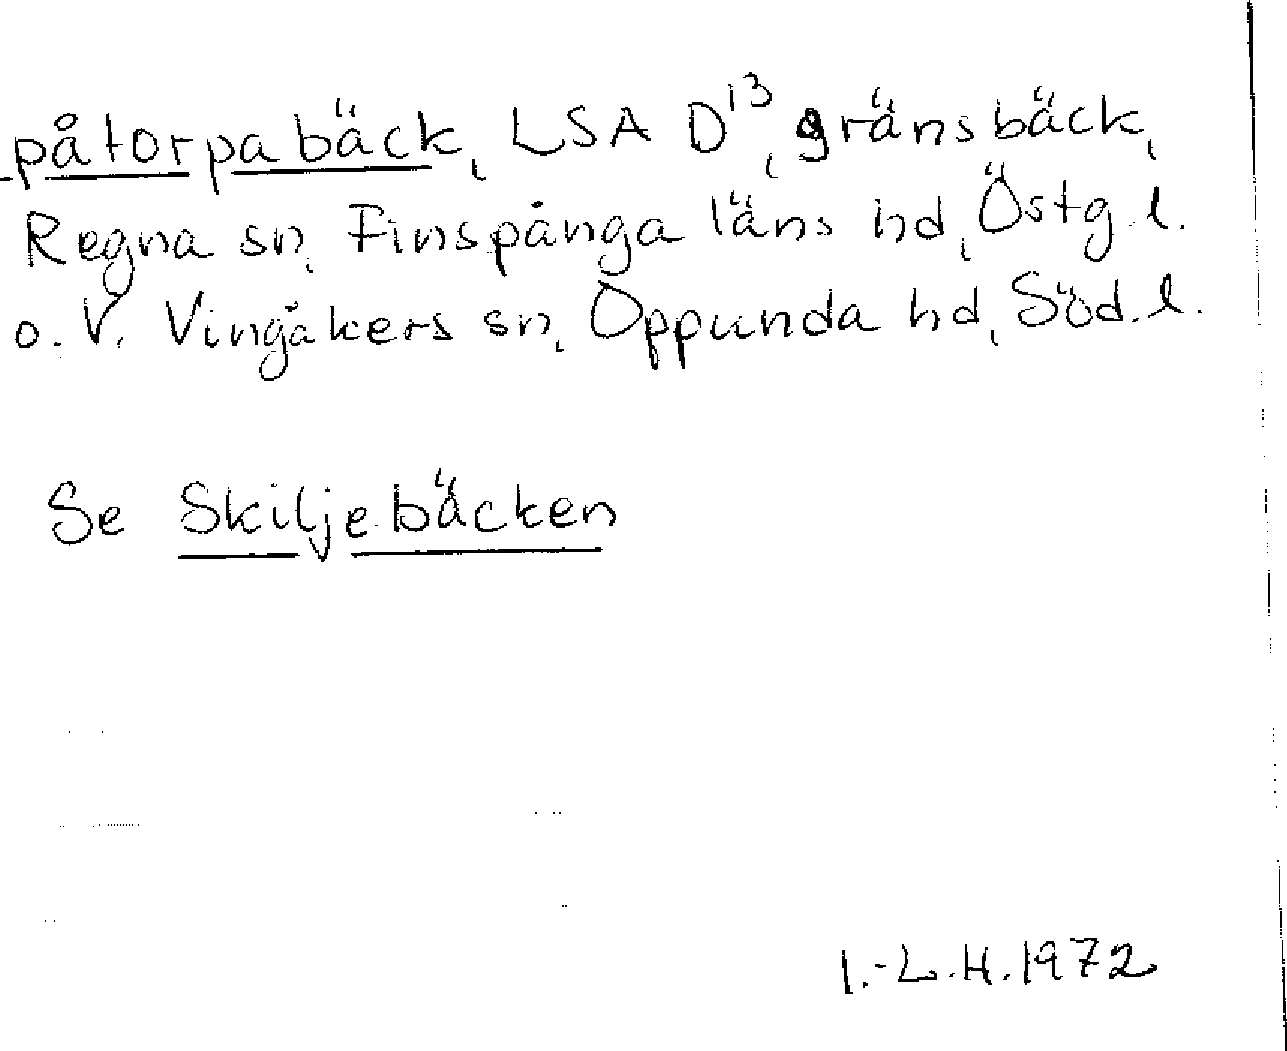 påtorpabäck, LSA D¹³, gränsbäck,
Regna sn, Finspånga läns hd, Östg.l.
o. V. Vingåkers sn, Oppunda hd, Söd.l.
Se Skiljebäcken
I.-L.H.1972